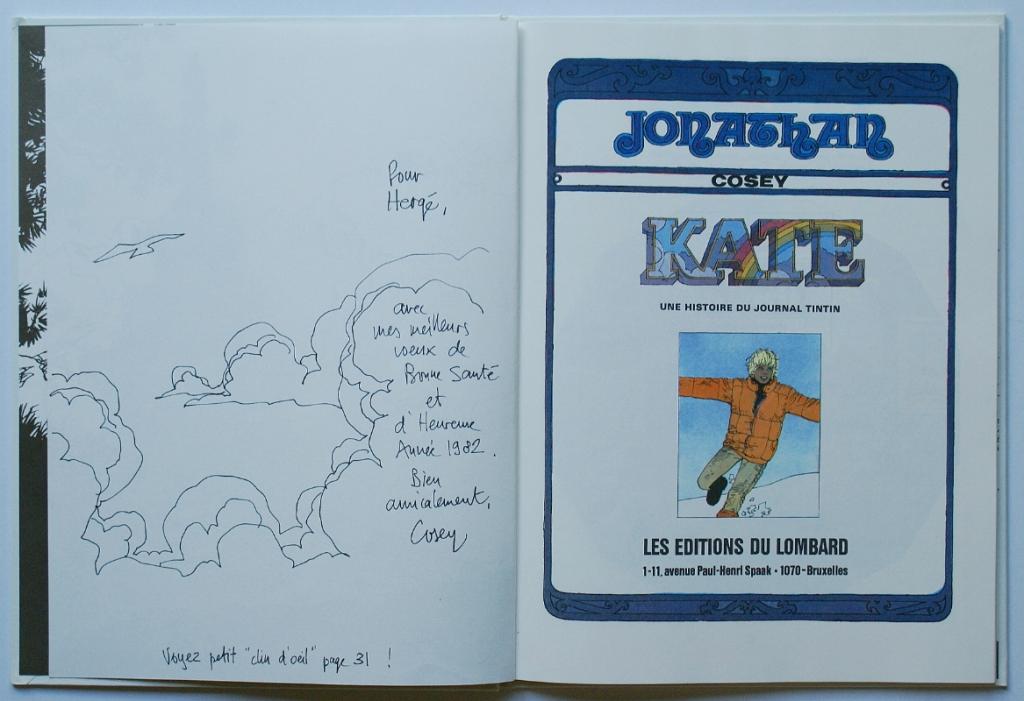 Pour
Hergé,
avec
mes meilleurs
voeux de
Bonne Santé
et
d'Heureuse
Année 1982.
Bien
amicalement,
Cosey
Voyez petit "clin d'oeil" page 31 !
JONATHAN
COSEY
KATE
UNE HISTOIRE DU JOURNAL TINTIN
LES EDITIONS DU LOMBARD
1-11, avenue Paul-Henri Spaak • 1070-Bruxelles